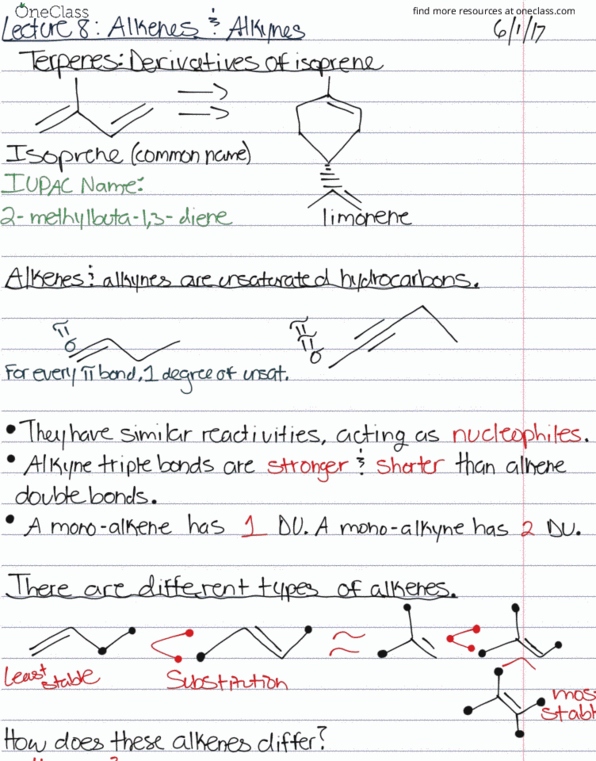 OneClass
find more resources at oneclass.com
Lecture 8: Alkenes & Alkynes
6/1/17
Terpenes: Derivatives of isoprene
Isoprene (common name)
IUPAC Name:
2-methylbuta-1,3-diene
limonene
Alkenes & alkynes are unsaturated hydrocarbons.
π
σ
π
π
σ
For every π bond, 1 degree of unsat.
• They have similar reactivities, acting as nucleophiles.
• Alkyne triple bonds are stronger & shorter than alkene
double bonds.
• A mono-alkene has 1 DU. A mono-alkyne has 2 DU.
There are different types of alkenes.
< ≈ < <
Least stable
Substitution
most
stabl
How does these alkenes differ?